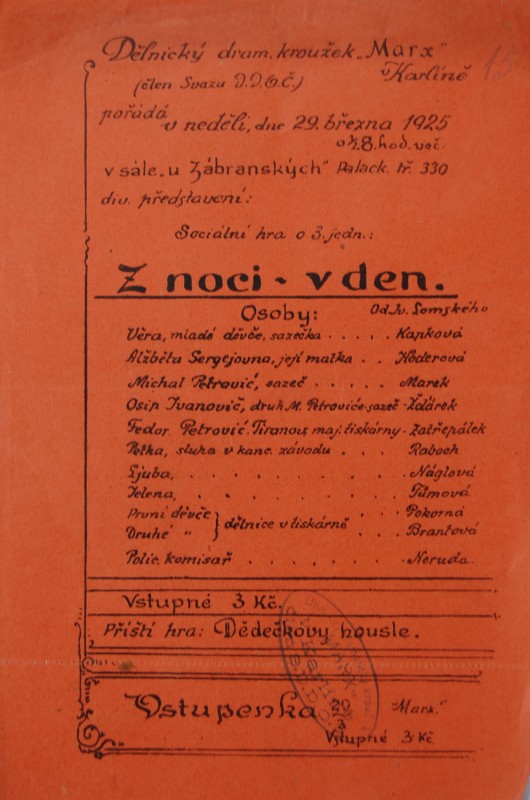 Dělnický dram. kroužek „Marx"
v Karlíně
15
(člen Svazu D.D.O.Č.)
pořádá
v neděli, dne 29. března 1925
o ½8. hod. več.
v sále „u Zábranských" Palack. tř. 330
div. představení:
Sociální hra o 3. jedn.:
Z noci - v den.
Osoby: Od Iv. Lomského
Věra, mladé děvče, sazečka . . . . . Kapková
Alžběta Sergejovna, její matka . . Hoderová
Michal Petrovič, sazeč . . . . . Marek
Osip Ivanovič, druh M. Petroviče-sazeč - Žďárek
Fedor Petrovič Tiranov, maj. tiskárny - Zatřepálek
Petka, sluha v kanc. závodu . . . Raboch
Ljuba, . . . . . . . Náglová
Jelena, . . . . . . . Tůmová
První děvče } dělnice v tiskárně . . Pokorná
Druhé " . . Brantová
Polic. komisař . . . . . . Neruda.
Vstupné 3 Kč.
Příští hra: Dědečkovy housle.
Vstupenka "Marx."
Vstupné 3 Kč.